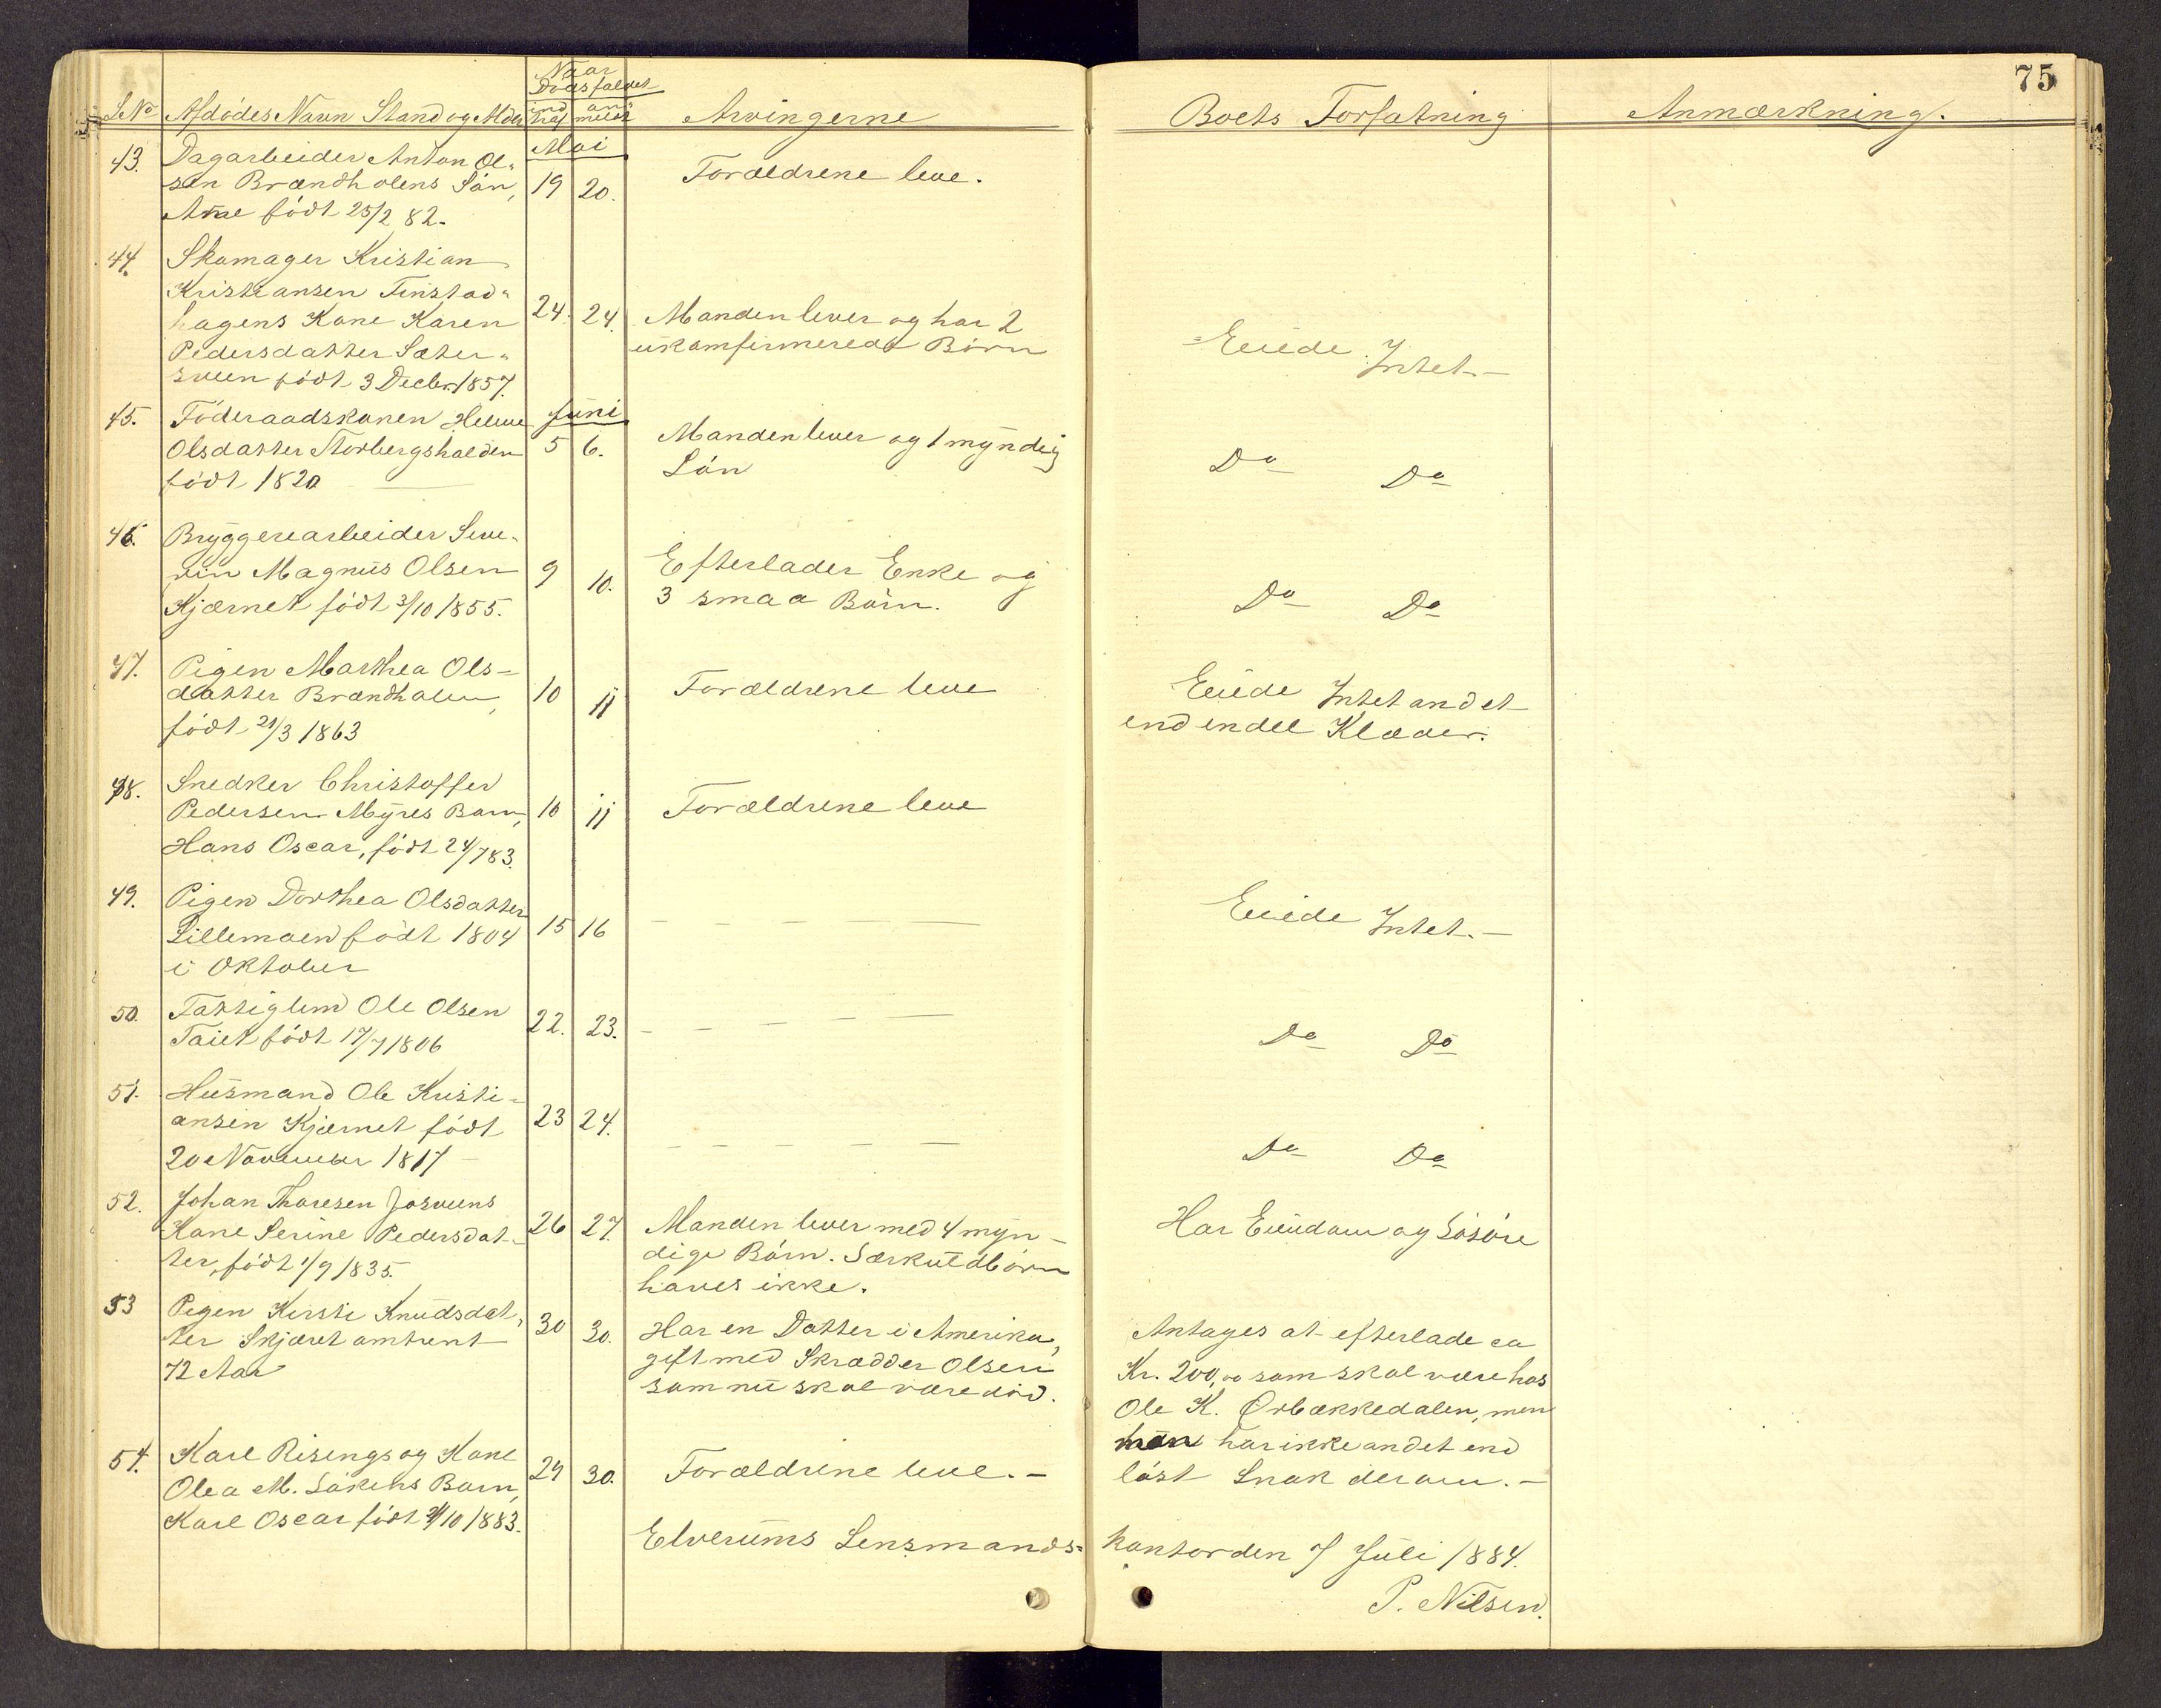 75
Naar
Dødsfaldet
L No Afdødes Navn Stand og Alder indtraf anmeldt Arvingerne Boets Forfatning Anmærkning.
Mai
43. Dagarbeider Anton Ol-
sen Brændholens Søn, 19 20. Forældrene leve.
Arne født 25/2 82.
44. Skomager Kristian
Kristiansen Finstad-
hagens Kone Karen 24. 24. Manden lever og har 2
Pedersdatter Sæter- ukomfirmerede Børn Eiede Intet.-
sveen født 3 Decbr. 1857.
Juni
45. Føderaadskonen Helene
Olsdatter Storbergshalden 5 6. Manden lever og 1 myndig
født 1820 Søn Do Do
46. Bryggeriarbeider Seve-
rin Magnus Olsen 9 10. Efterlader Enke og
Kjærnet født 3/10 1855. 3 smaa Børn. Do Do
47. Pigen Marthea Ols-
datter Brændholen, 10 11 Forældrene leve Eiede Intet andet
født 21/3 1863 end endel Klæder.
48. Snedker Christoffer
Pedersen Myres Barn, 10 11 Forældrene leve
Hans Oscar, født 24/7 83.
49. Pigen Dorthea Olsdatter
Lillemoen født 1804 15 16 — — — — — Eiede Intet.-
i Oktober
50. Fattiglem Ole Olsen
Taiet født 17/7 1806 22. 23. — — — — — Do Do
51. Husmand Ole Kristi-
ansen Kjærnet født 23 24.
20 November 1817 — — — — — — Do Do
52. Johan Thoresen Josveens
Kone Serine Pedersdat- 26 27. Manden lever med 4 myn- Har Eiendom og Løsøre
ter, født 1/9 1835. dige Børn. Særkuldbørn
haves ikke.
53 Pigen Kirsti Knudsdat-
ter Skjæret omtrent 30 30. Har en Datter i Amerika, Antages at efterlade ca
72 Aar gift med Skrædder Olsen Kr. 200,00 som skal være hos
som nu skal være død. Ole K. Ørbækkedalen, men
man har ikke andet end
løst Snak derom.-
54. Karl Risengs og Kone
Olea M. Løkens Barn, 29 30. Forældrene leve.-
Karl Oscar født /10 1883.
Elverums Lensmands- kontor den 7 Juli 1884.
P. Nilsen.